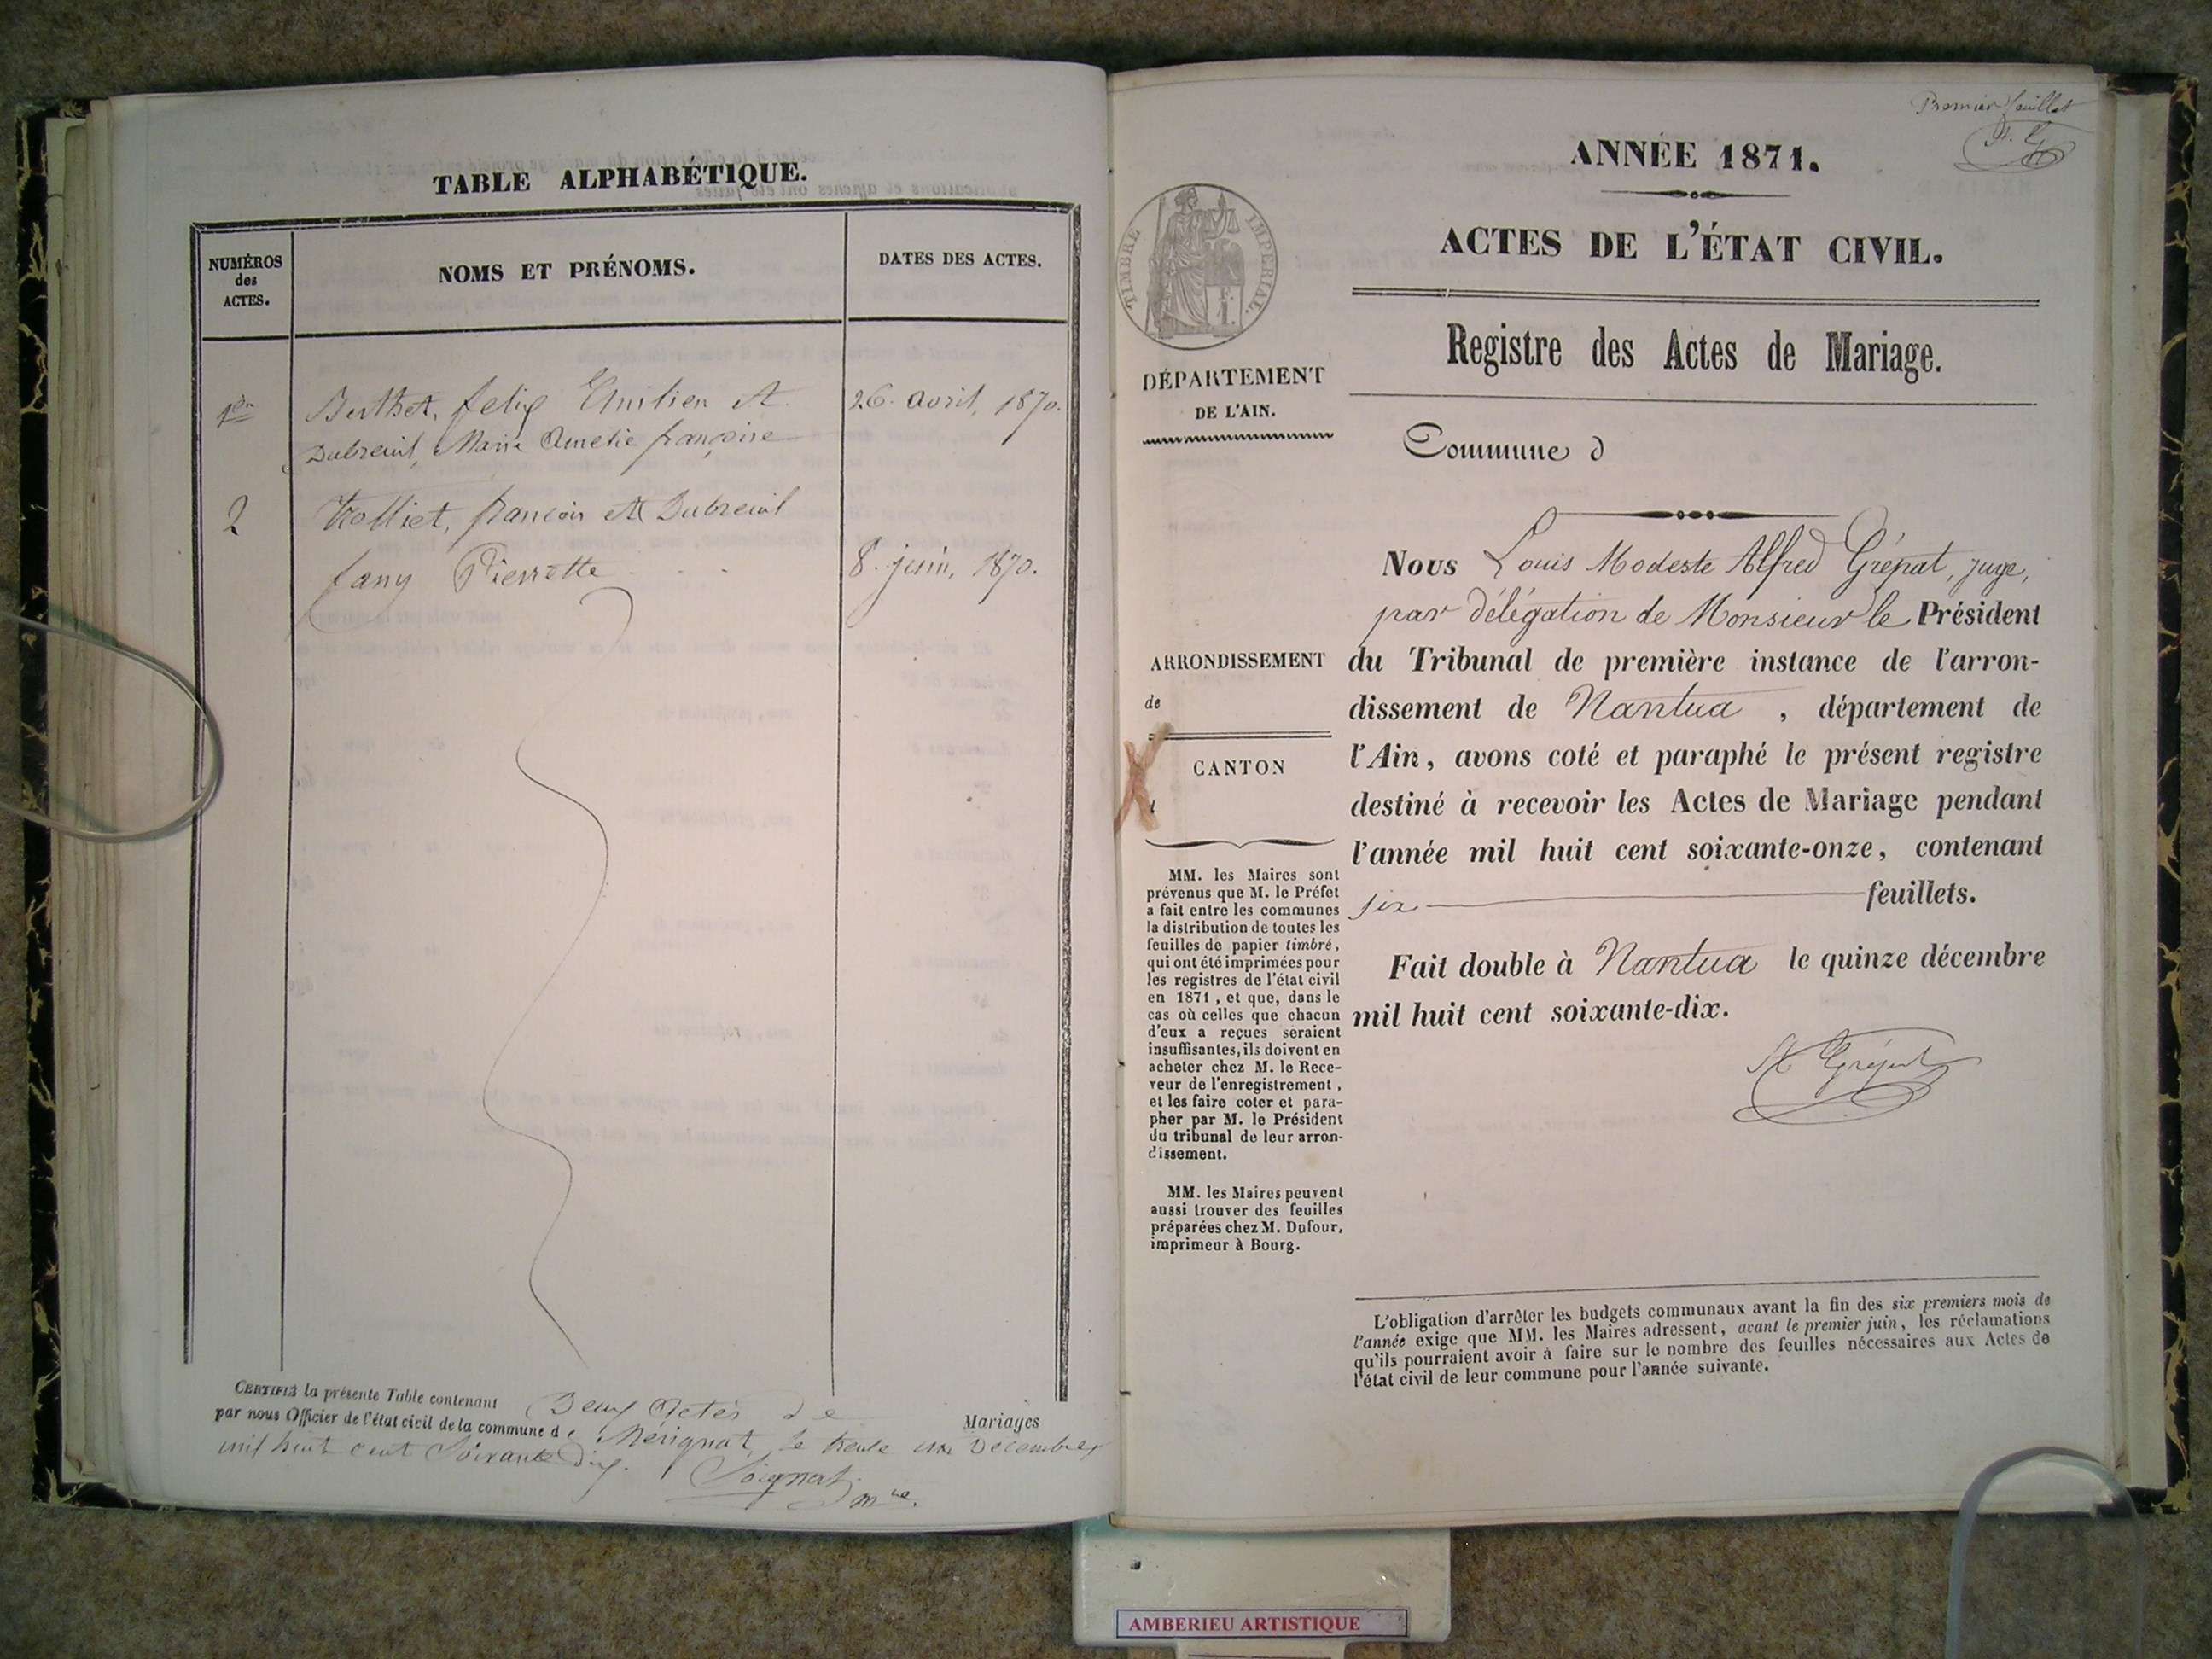 TABLE ALPHABÉTIQUE.
NUMÉROS
des
ACTES.
NOMS ET PRÉNOMS.
DATES DES ACTES.
1er
Berthet, felix Emilien et
26. avril, 1870.
Dubreuil, Marie Amelie françoise
2
françois et Dubreuil
fany Pierrette
8. juin, 1870.
CERTIFIÉ la présente Table contenant Deux Actes de Mariages
par nous Officier de l'état civil de la commune de Mérignat, le trente un Décembre
mil huit cent soixante dix.
mre.
Premier feuillet
A. G
ANNÉE 1871.
ACTES DE L'ÉTAT CIVIL.
Registre des Actes de Mariage.
TIMBRE IMPERIAL.
DÉPARTEMENT
DE L'AIN.
Commune d
Nous Louis Modeste Alfred Grépat, juge,
par délégation de Monsieur le Président
du Tribunal de première instance de l'arron-
dissement de Nantua, département de
l'Ain, avons coté et paraphé le présent registre
destiné à recevoir les Actes de Mariage pendant
l'année mil huit cent soixante-onze, contenant
six feuillets.
Fait double à Nantua le quinze décembre
mil huit cent soixante-dix.
A Grépat
ARRONDISSEMENT
de
CANTON
MM. les Maires sont
prévenus que M. le Préfet
a fait entre les communes
la distribution de toutes les
feuilles de papier timbré,
qui ont été imprimées pour
les registres de l'état civil
en 1871, et que, dans le
cas où celles que chacun
d'eux a reçues seraient
insuffisantes, ils doivent en
acheter chez M. le Rece-
veur de l'enregistrement,
et les faire coter et para-
pher par M. le Président
du tribunal de leur arron-
dissement.
MM. les Maires peuvent
aussi trouver des feuilles
préparées chez M. Dufour,
imprimeur à Bourg.
L'obligation d'arrêter les budgets communaux avant la fin des six premiers mois de
l'année exige que MM. les Maires adressent, avant le premier juin, les réclamations
qu'ils pourraient avoir à faire sur le nombre des feuilles nécessaires aux Actes de
l'état civil de leur commune pour l'année suivante.
AMBERIEU ARTISTIQUE